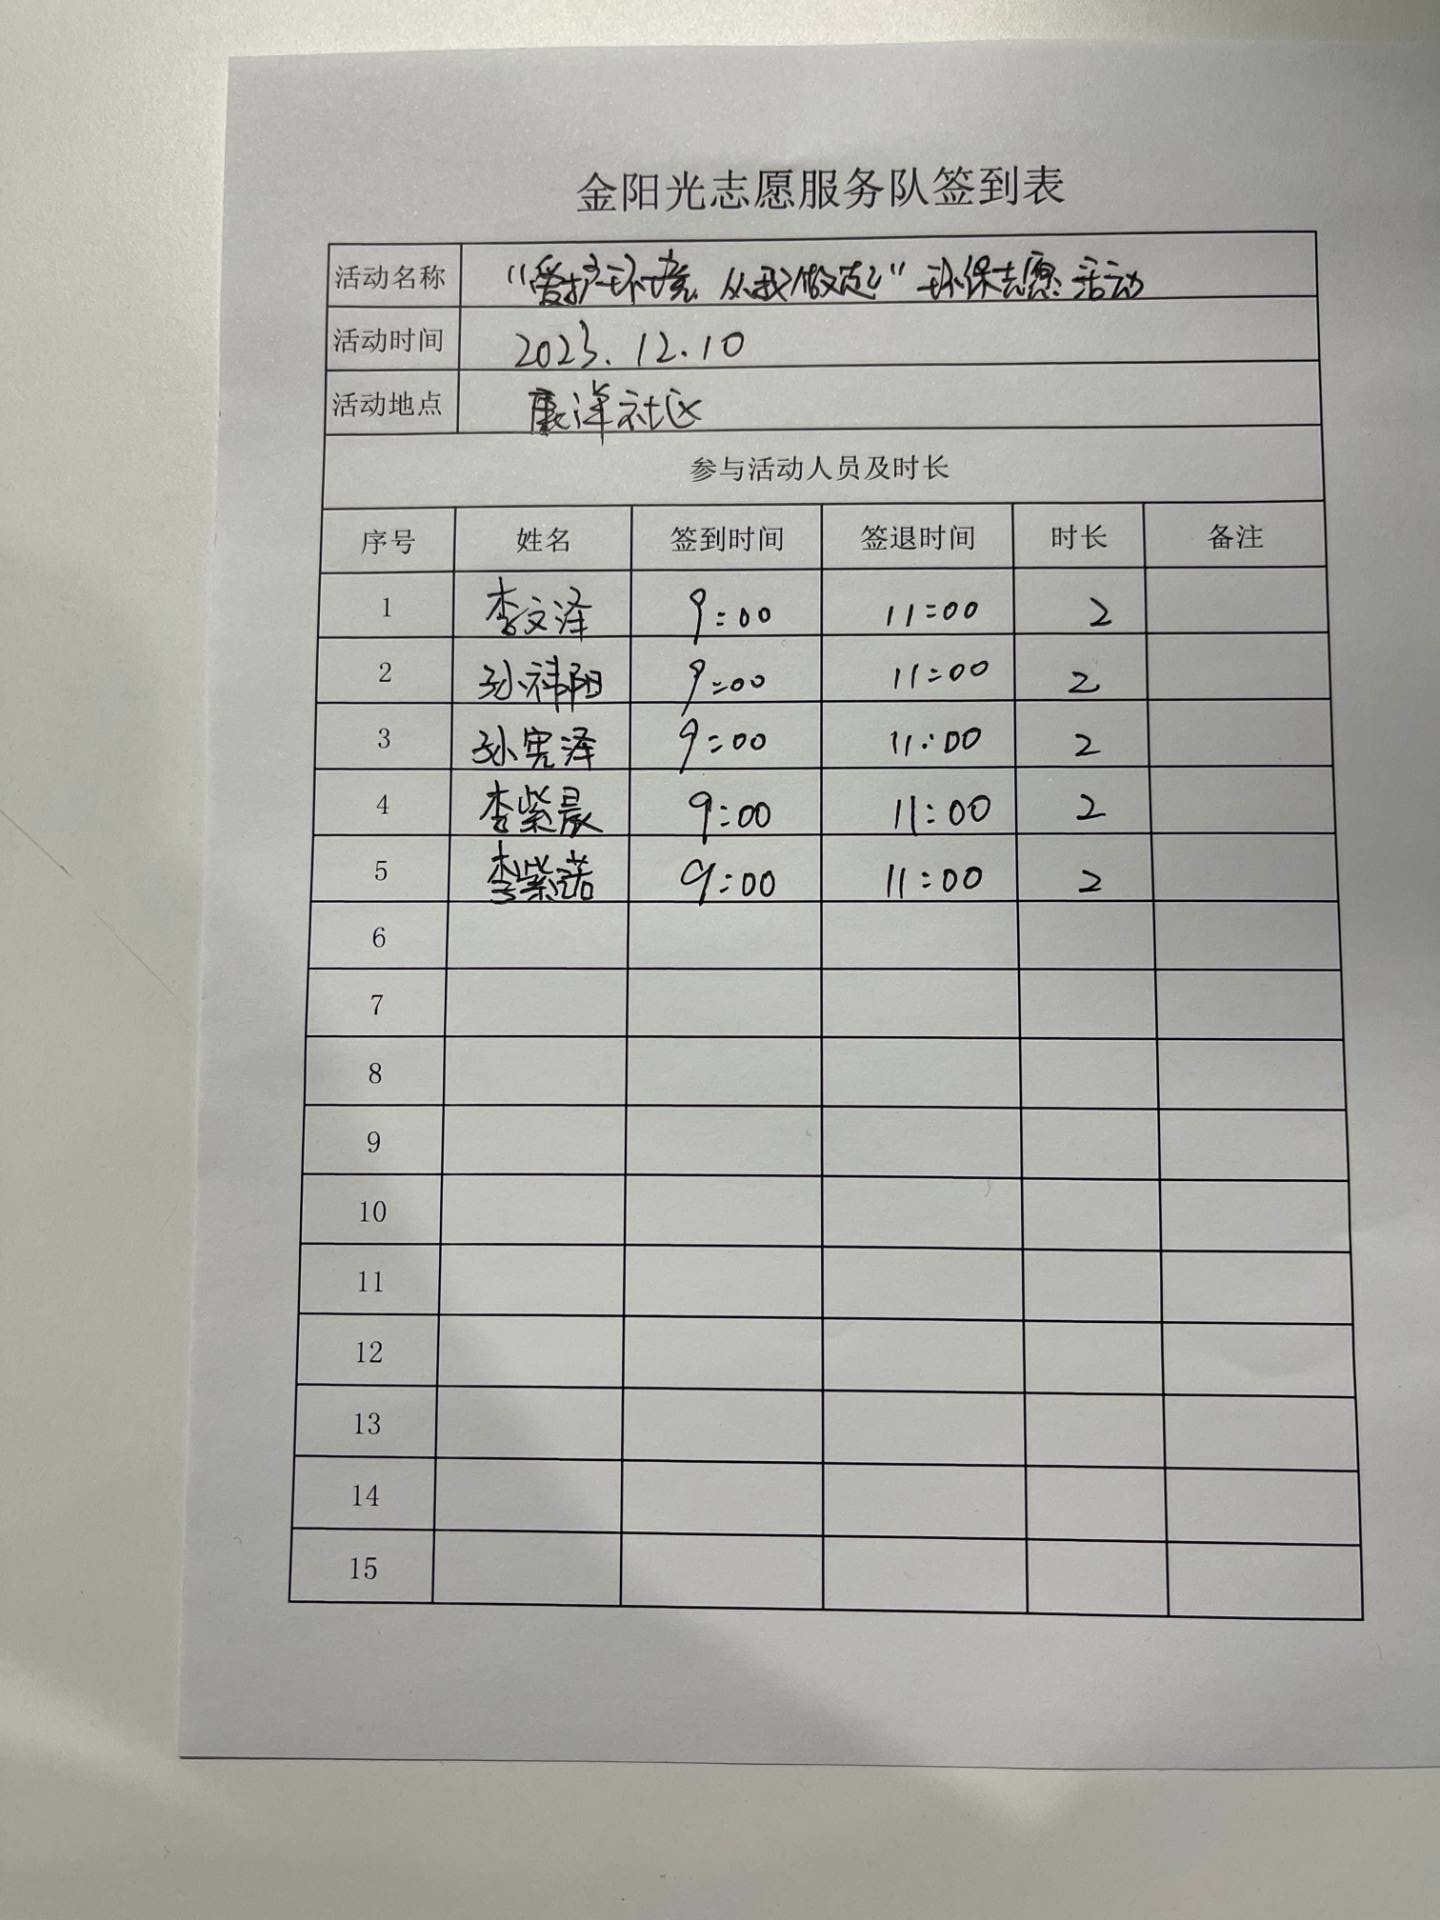 金阳光志愿服务队签到表
活动名称 “爱护环境 从我做起” 环保志愿活动
活动时间 2023.12.10
活动地点 康泽社区
参与活动人员及时长
序号 姓名 签到时间 签退时间 时长 备注
1 李文泽 9:00 11:00 2
2 孙祎阳 9:00 11:00 2
3 孙宪泽 9:00 11:00 2
4 李紫晨 9:00 11:00 2
5 李紫诺 9:00 11:00 2
6
7
8
9
10
11
12
13
14
15